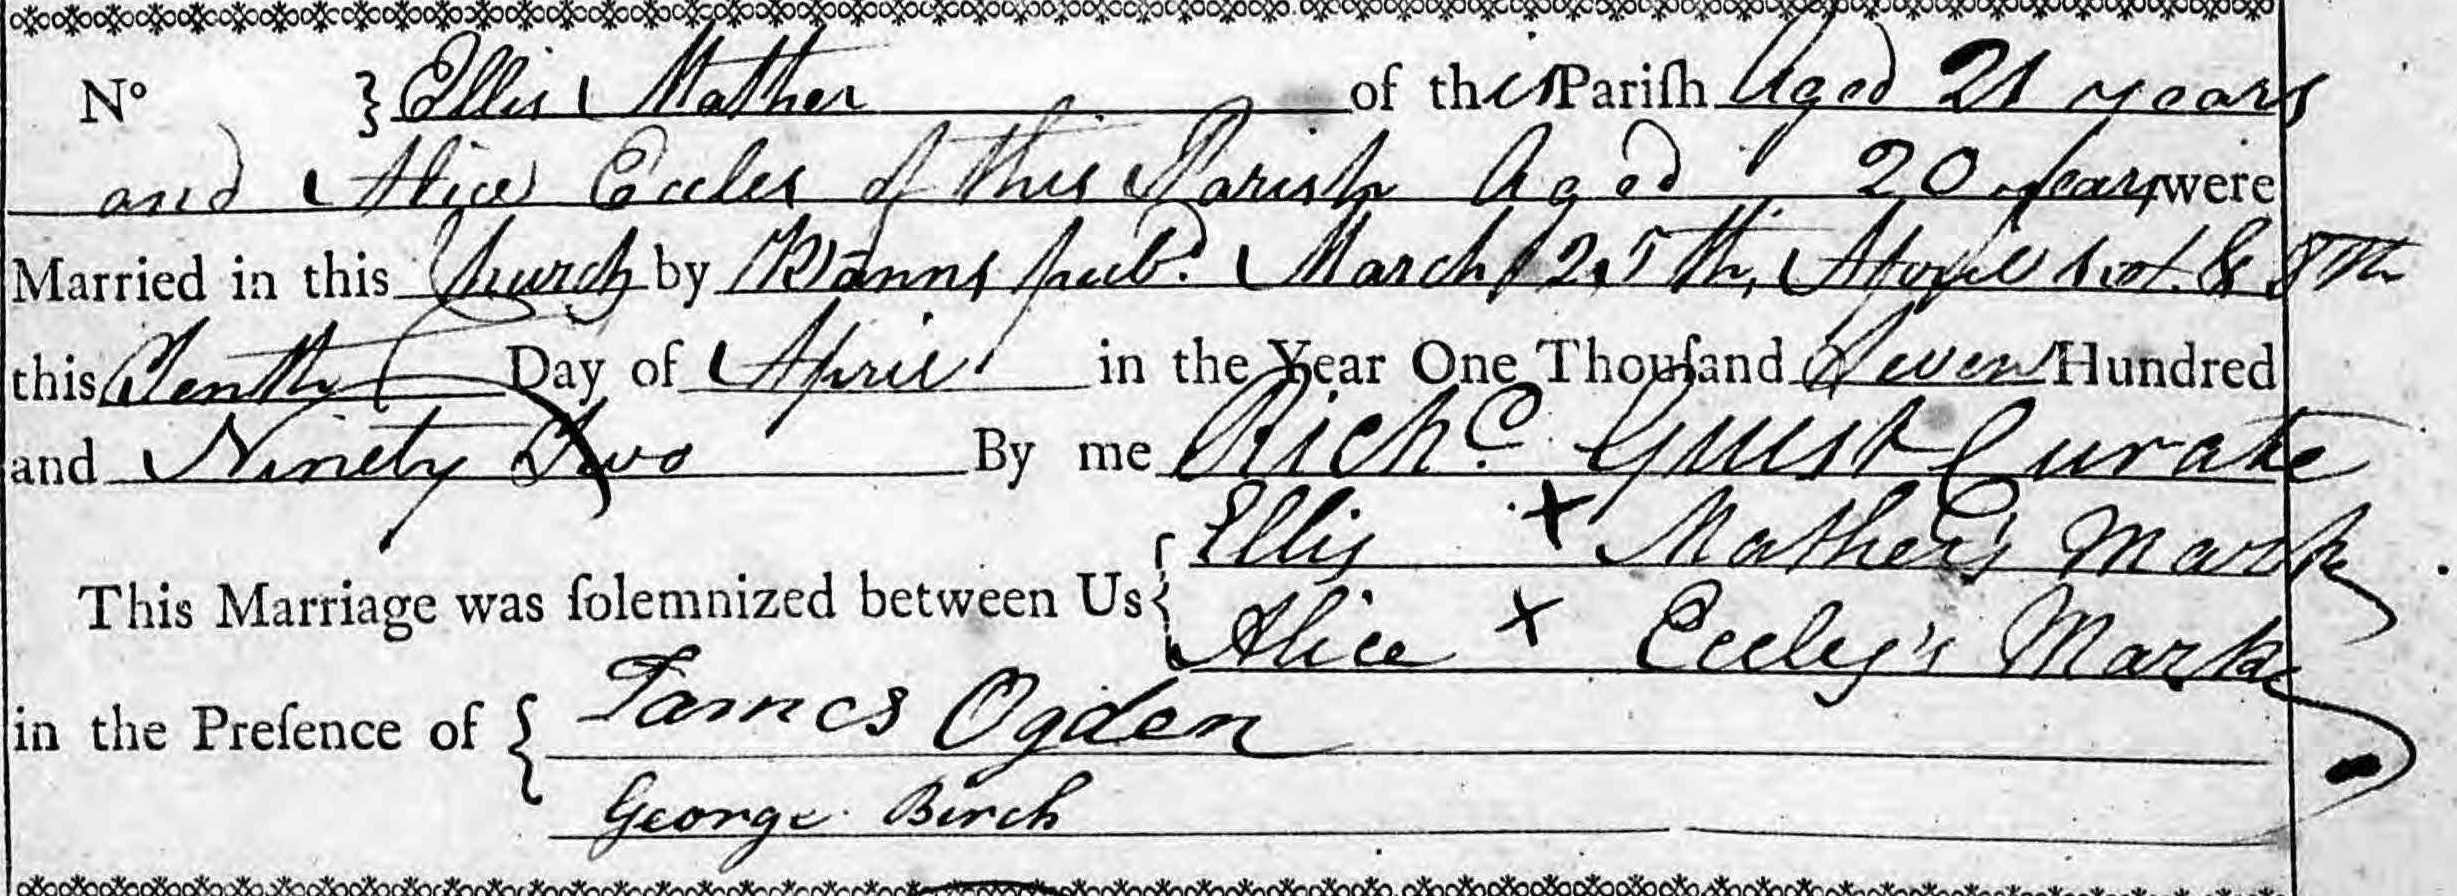 No } Ellis Mather of this Pariſh Aged 21 years
and Alice Eccles of this Parish Aged 20 years, were
Married in this Church by Banns pub.d March 25th, April 1st. & 8th
this Tenth Day of April in the Year One Thouſand Seven Hundred
and Ninety Two By me Richd. Guest Curate
This Marriage was ſolemnized between Us { Ellis X Mather's Mark
Alice X Eccles's Mark
in the Preſence of { James Ogden
George Birch